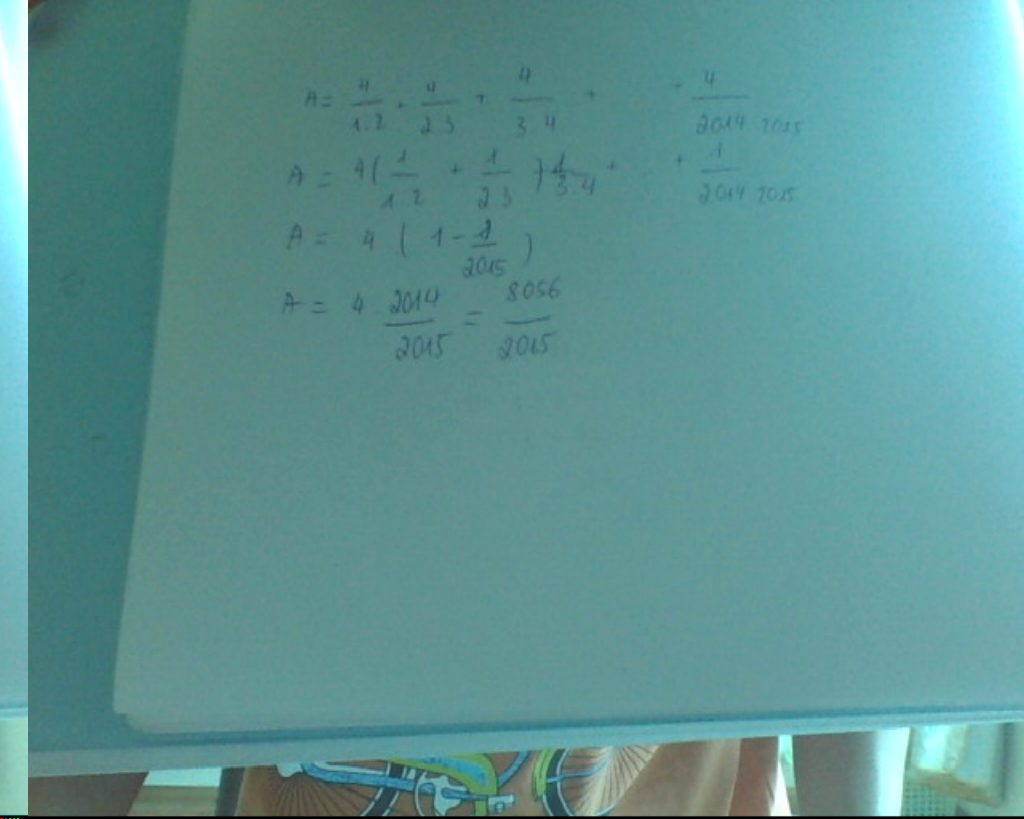 A = 4/1.2 + 4/2.3 + 4/3.4 + + 4/2014.2015
A = 4(1/1.2 + 1/2.3) 1/3.4 + ... + 1/2014.2015
A = 4 (1 - 1/2015)
A = 4 2014/2015 = 8056/2015